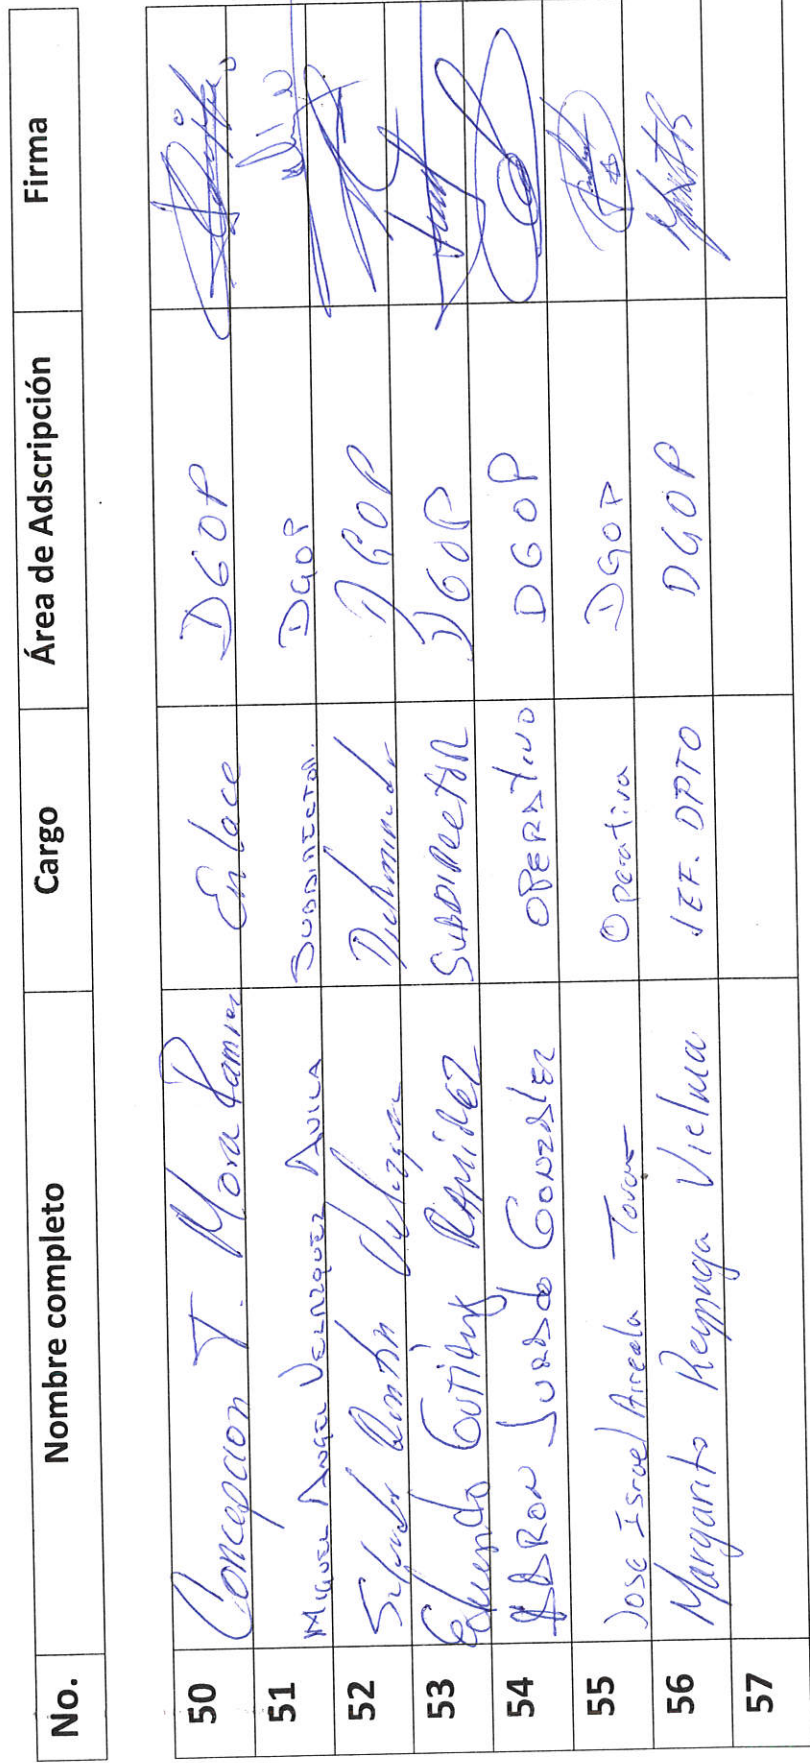 No. Nombre completo Cargo Área de Adscripción Firma
50 Concepcion T. Mora Ramirez Enlace DGOP
51 Miguel Angel Velazquez Avila Subdirector. DGOP
52 DGOP
53 Gutierrez Ramirez Subdirector DGOP
54 Jurado González OPERATIVO DGOP
55 Jose Israel Arreola Tovar Operativa DGOP
56 Margarito Vielma JEF. DPTO DGOP
57